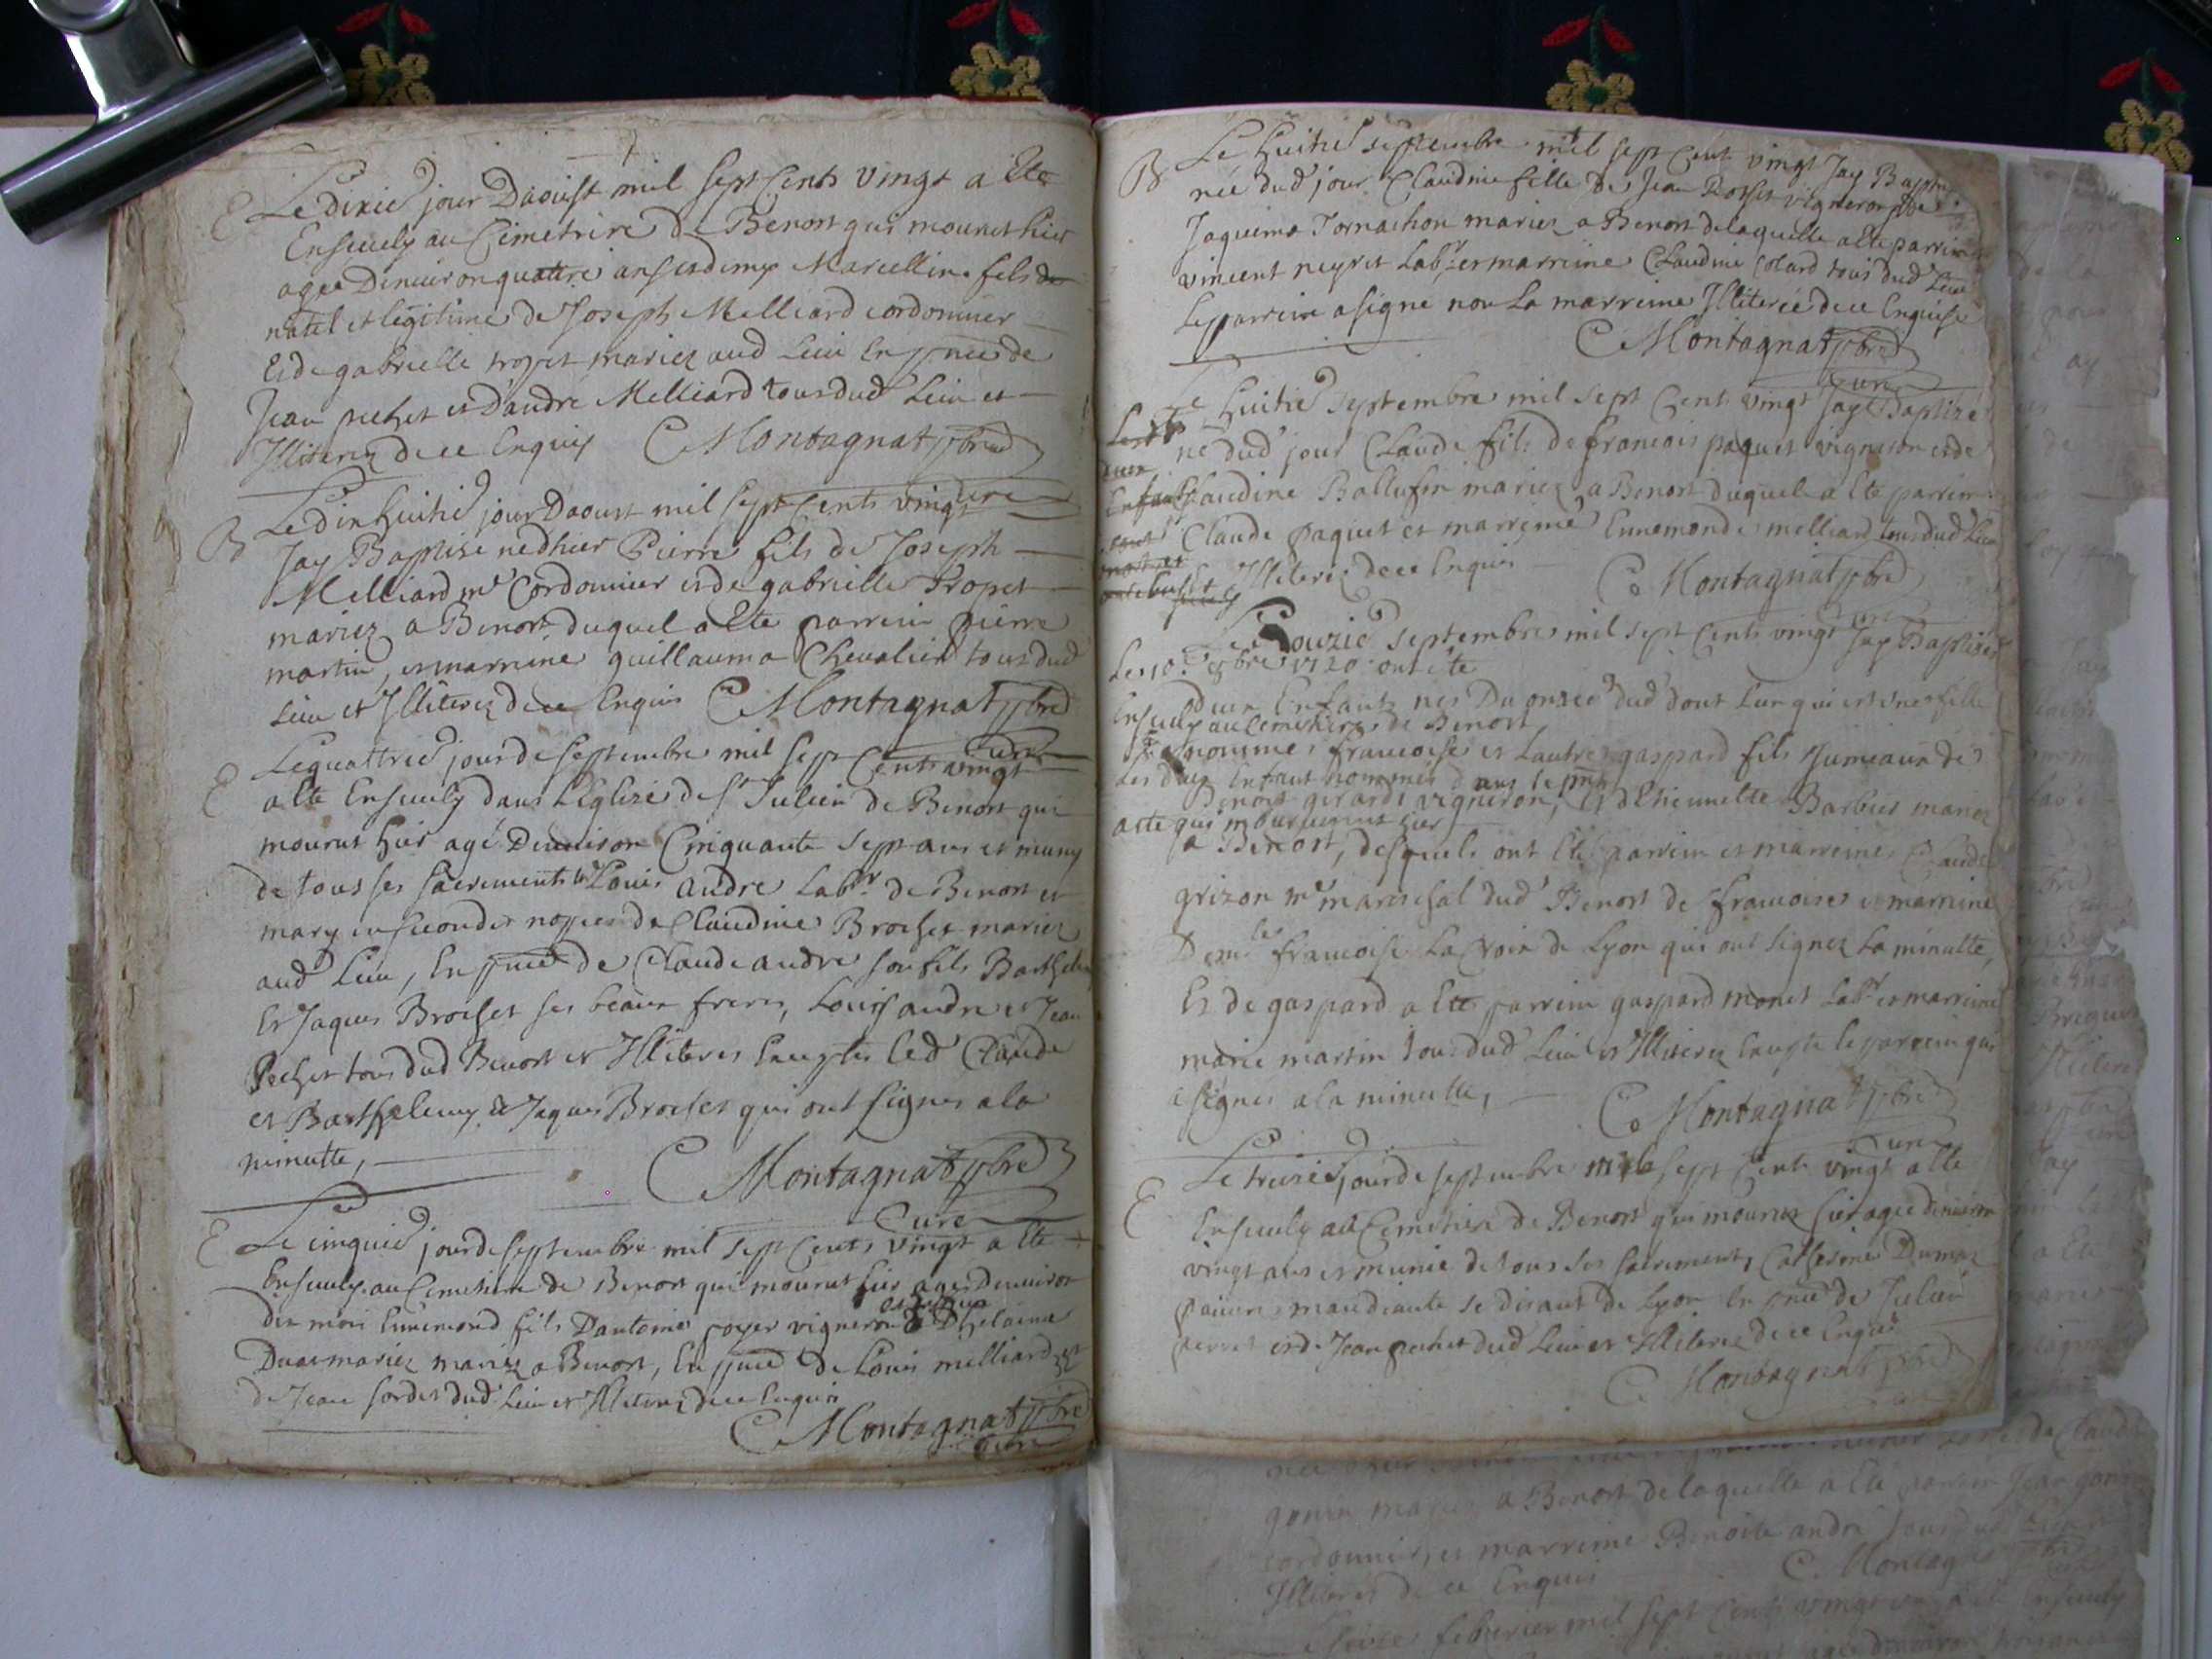 E Le dixie jour Daoust mil sept Cents vingt a Ete
Ensevely au Cimetrire de Benost qui mourut hier
agee Denuiron quattre ans et demy Marcellin fils de
natel et legitime de Joseph Melliard cordonnier
Et de gabrielle tropet mariez aud Lieu En pnce de
Jean pechet et Dandré Melliard tous dud Lieu et
Illiterez de ce Enquis C Montagnat pbre
Cure
B Le dix huitie jour Daoust mil sept Cents vingt
Jay Baptise né dhier Pierre fils de Joseph
Melliard me Cordonnier et de gabrielle Tropet
mariez a Benost duquel a Ete parrein pierre
martin, et marreine guillauma Chevalier tous dud
Lieu et Illiterez de ce Enquis C Montagnat pbre
Cure
E Le quattrie jour de septembre mil sept Cents vingt
a Ete Ensevely dans L'Eglize de St Julien de Benost qui
mourut hier agé Denuiron Cinquante sept ans et muny
de tous ses sacrements Louis andre Labr de Benost et
mary en secondes nopces de Claudine Brochet mariez
aud Lieu, En pnce de Claude andre son fils Barthelemy
Et Jaques Brochet ses beaux freres, Louis andre et Jean
Pechet tous dud Benost et Illiteres Exceptes led Claude
et Barthelemy & Jaques Brochet qui ont signes a la
minutte,
C Montagnat pbre
Cure
E Le cinquie jour de septembre mil sept Cents vingt a Ete
Ensevely au Cemetiere de Benost qui mourut hier agee Denuiron
dix mois Ennemond fils Dantoine poyer vigneron Dhelaine
mariez a Benost, En pnce de Louis melliard et
de Jean sordet dud Lieu et Illiterez de ce Enquis
C Montagnat pbre
Cure
B Le huitie septembre mil sept Cent vingt Jay Baptisé
née dud jour Claudine fille de Jean Rosset vigneron et de
Jaquema Tornachon mariez a Benost de laquelle a Ete parrein
vincent neyret Labr et marreine Claudine Colard tous dud Lieu
Le parrein a signé non La marreine Illiterée de ce Enquise
C Montagnat pbre
Cure
Le huitie septembre mil sept Cents vingt Jay Baptizé
né dud jour Claude fils de francois paquet vigneron et de
Claudine Ballufin mariez a Benost duquel a Ete parrein
Claude paquet et marreine Ennemonde melliard tous dud Lieu
Illiterez de ce Enquis C Montagnat pbre
Cure
Le Douzie septembre mil sept Cents vingt Jay Baptises
Les 10 8bre 1720 ont ete
deux Enfants nes Du onzee dud dont Lun qui est une fille
Ensevely au Cemetiere de Benost
nommes francoise et Lautre gaspard fils Jumeaux de
Les deux Enfant nommes dans le pnt
Benoit girardt vigneron, et d'Etiennette Barbier mariez
acte qui moururent hier
a Benost, desquels ont Eté parrein et marreine, Claude
grizon me mareschal dud Benost de francoise et marreine
Demlle francoise La Croix de Lyon qui ont signez La minutte,
Et de gaspard a Ete parrein gaspard monet Labr et marreine
marie martin tous dud Lieu et Illiterez Excepte le parrein qui
a signés a la minutte,
C Montagnat pbre
Cure
E Le treizie jour de septembre mil sept Cents vingt a Ete
Ensevely au Cemetiere de Benost qui mourut hier agee denuiron
vingt ans et munie de tous ses sacrements Catherine Dumas
pauvre mandiante se disant de Lyon En pnce de Julien
perret et de Jean pechet dud Lieu et Illiterez de ce Enquis
C Montagnat pbre
gonin mariez a Benost de laquelle a Ete parrein Jean gonin
cordonnier, et marreine Benoite andré tous dud Lieu
Illiteres de ce Enquis C. Montagnat pbre